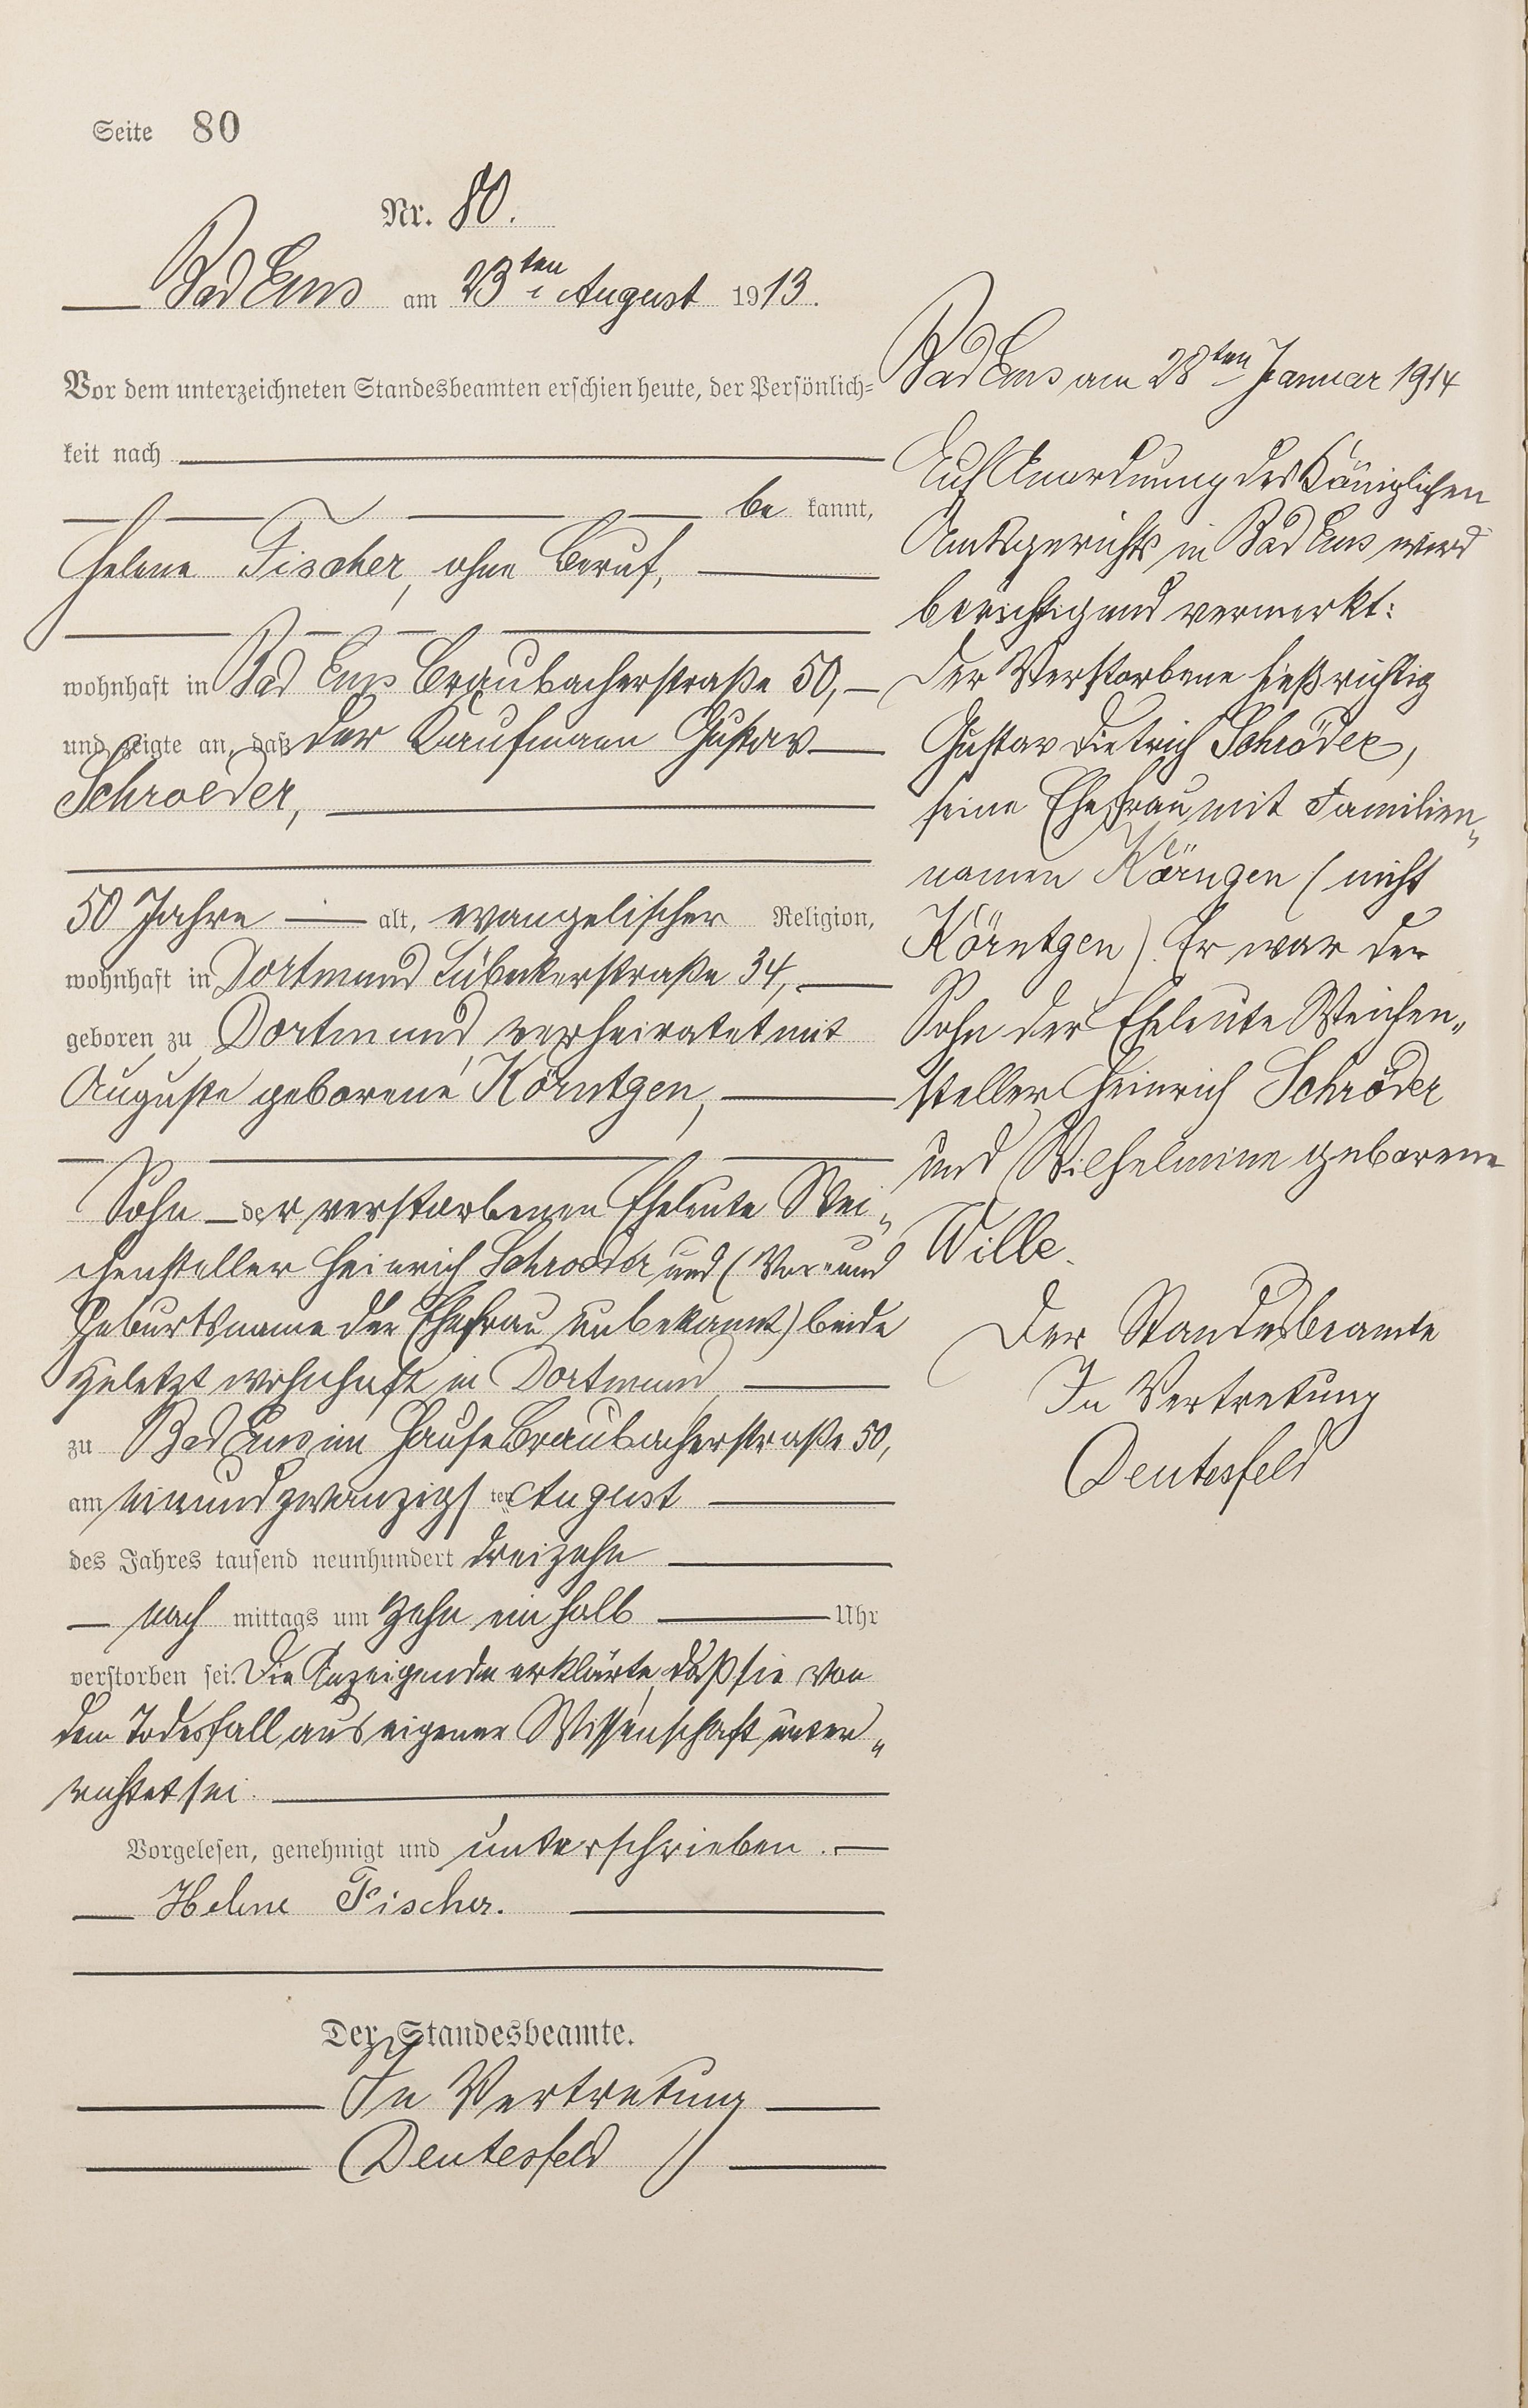 Seite 80
Nr. 80.
Bad Ems am 23ten August 1913.
Vor dem unterzeichneten Standesbeamten erschien heute, der Persönlich=
keit nach
be kannt,
Helene Fischer, ohne Beruf,
wohnhaft in Bad Ems Braubacherstraße 50,
und zeigte an, daß der Kaufmann Gustav
Schroeder,
50 Jahre alt, evangelischer Religion,
wohnhaft in Dortmund Lübeckerstraße 34,
geboren zu Dortmund, verheiratet mit
Auguste geborene Körntgen,
Sohn der verstorbenen Eheleute Wei„
chensteller Heinrich Schroeder und (Vor- und
Geburtsname der Ehefrau unbekannt) beide
zuletzt wohnhaft in Dortmund
zu Bad Ems im Hause Braubacherstraße 50,
am einundzwanzigsten August
des Jahres tausend neunhundert dreizehn
nach mittags um zehn einhalb Uhr
verstorben sei. Die Anzeigende erklärte, daß sie von
dem Todesfall aus eigener Wissenschaft unter„
richtet sei.
Vorgelesen, genehmigt und unterschrieben.
Helene Fischer.
Der Standesbeamte.
In Vertretung
Deutesfeld
Bad Ems am 28ten Januar 1914
Auf Anordnung des Königlichen
Amtsgerichts in Bad Ems wird
berichtigend vermerkt:
Der Verstorbene hieß richtig
Gustav Dietrich Schröder,
seine Ehefrau mit Familien„
namen Körngen (nicht
Körntgen). Er war der
Sohn der Eheleute Weichen„
steller Heinrich Schröder
und Wilhelmine geborene
Wille.
Der Standesbeamte
In Vertretung
Deutesfeld